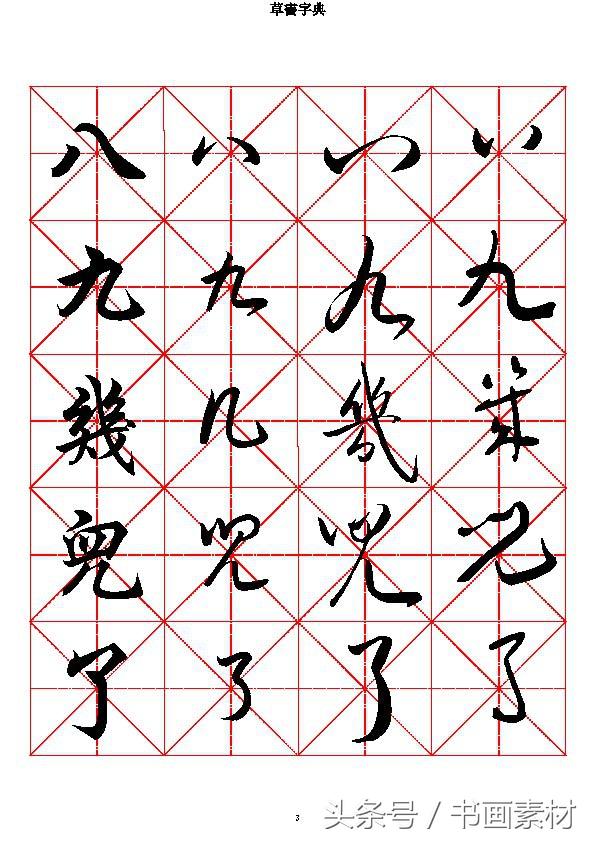 草書字典
八 八 八 八
九 九 九 九
幾 几 幾 幾
兒 兒 兒 兒
了 了 了 了
3
头条号 / 书画素材